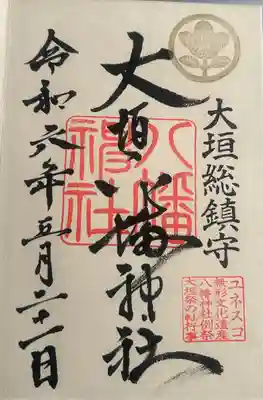 大垣総鎮守
大垣八幡神社
八幡神社
令和六年五月二十一日
ユネスコ
無形文化遺産
八幡神社例祭
大垣祭の𨏍行事